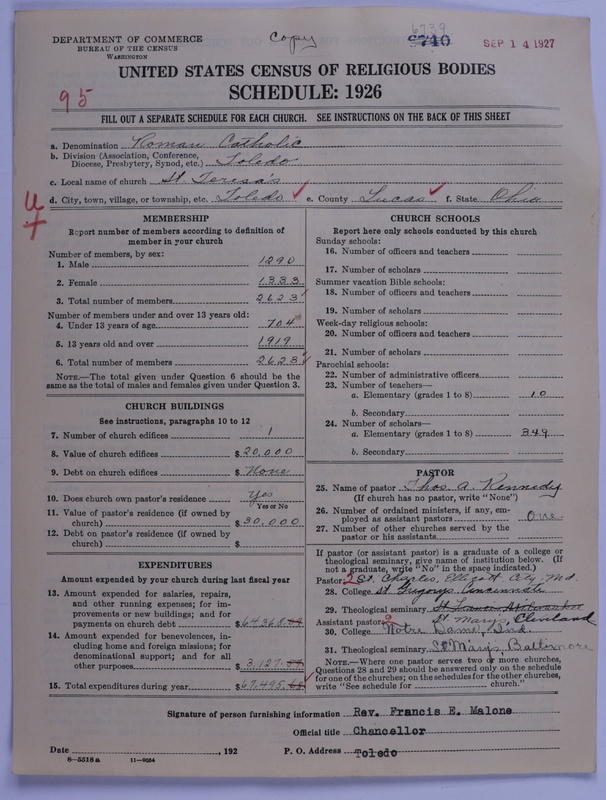 DEPARTMENT OF COMMERCE
BUREAU OF THE CENSUS
WASHINGTON
Copy
6739
SEP 14 1927
UNITED STATES CENSUS OF RELIGIOUS BODIES
SCHEDULE: 1926
95
FILL OUT A SEPARATE SCHEDULE FOR EACH CHURCH. SEE INSTRUCTIONS ON THE BACK OF THIS SHEET
a. Denomination Roman Catholic
b. Division (Association, Conference, Diocese, Presbytery, Synod, etc.) Toledo
c. Local name of church St. Teresa's
d. City, town, village, or township, etc. Toledo e. County Lucas f. State Ohio
MEMBERSHIP
Report number of members according to definition of
member in your church
Number of members, by sex:
1. Male 1290
2. Female 1333
3. Total number of members 2623
Number of members under and over 13 years old:
4. Under 13 years of age 704
5. 13 years old and over 1919
6. Total number of members 2623
NOTE.—The total given under Question 6 should be the
same as the total of males and females given under Question 3.
CHURCH BUILDINGS
See instructions, paragraphs 10 to 12
7. Number of church edifices 1
8. Value of church edifices $20,000
9. Debt on church edifices $None
10. Does church own pastor's residence Yes
Yes or No
11. Value of pastor's residence (if owned by
church) $30,000
12. Debt on pastor's residence (if owned by
church) $
EXPENDITURES
Amount expended by your church during last fiscal year
13. Amount expended for salaries, repairs,
and other running expenses; for im-
provements or new buildings; and for
payments on church debt $64,368
14. Amount expended for benevolences, in-
cluding home and foreign missions; for
denominational support; and for all
other purposes $3,127
15. Total expenditures during year $67,495
CHURCH SCHOOLS
Report here only schools conducted by this church
Sunday schools:
16. Number of officers and teachers
17. Number of scholars
Summer vacation Bible schools:
18. Number of officers and teachers
19. Number of scholars
Week-day religious schools:
20. Number of officers and teachers
21. Number of scholars
Parochial schools:
22. Number of administrative officers
23. Number of teachers—
a. Elementary (grades 1 to 8) 10
b. Secondary
24. Number of scholars—
a. Elementary (grades 1 to 8) 349
b. Secondary
PASTOR
25. Name of pastor Thos. A. Kennedy
(If church has no pastor, write "None")
26. Number of ordained ministers, if any, em-
ployed as assistant pastors One
27. Number of other churches served by the
pastor or his assistants
If pastor (or assistant pastor) is a graduate of a college or
theological seminary, give name of institution below. (If
not a graduate, write "No" in the space indicated.)
Pastor: 2 St. Charles, Ellicott City, Md.
28. College St Gregory Cincinnati
29. Theological seminary
Assistant pastor: 2 St. Marys, Cleveland
30. College Notre Dame, Ind.
31. Theological seminary St. Marys, Baltimore
NOTE.—Where one pastor serves two or more churches,
Questions 28 and 29 should be answered only on the schedule
for one of the churches; on the schedules for the other churches,
write "See schedule for church."
Signature of person furnishing information Rev. Francis E. Malone
Official title Chancellor
Date , 192 P. O. Address Toledo
8—5518a 11—9054